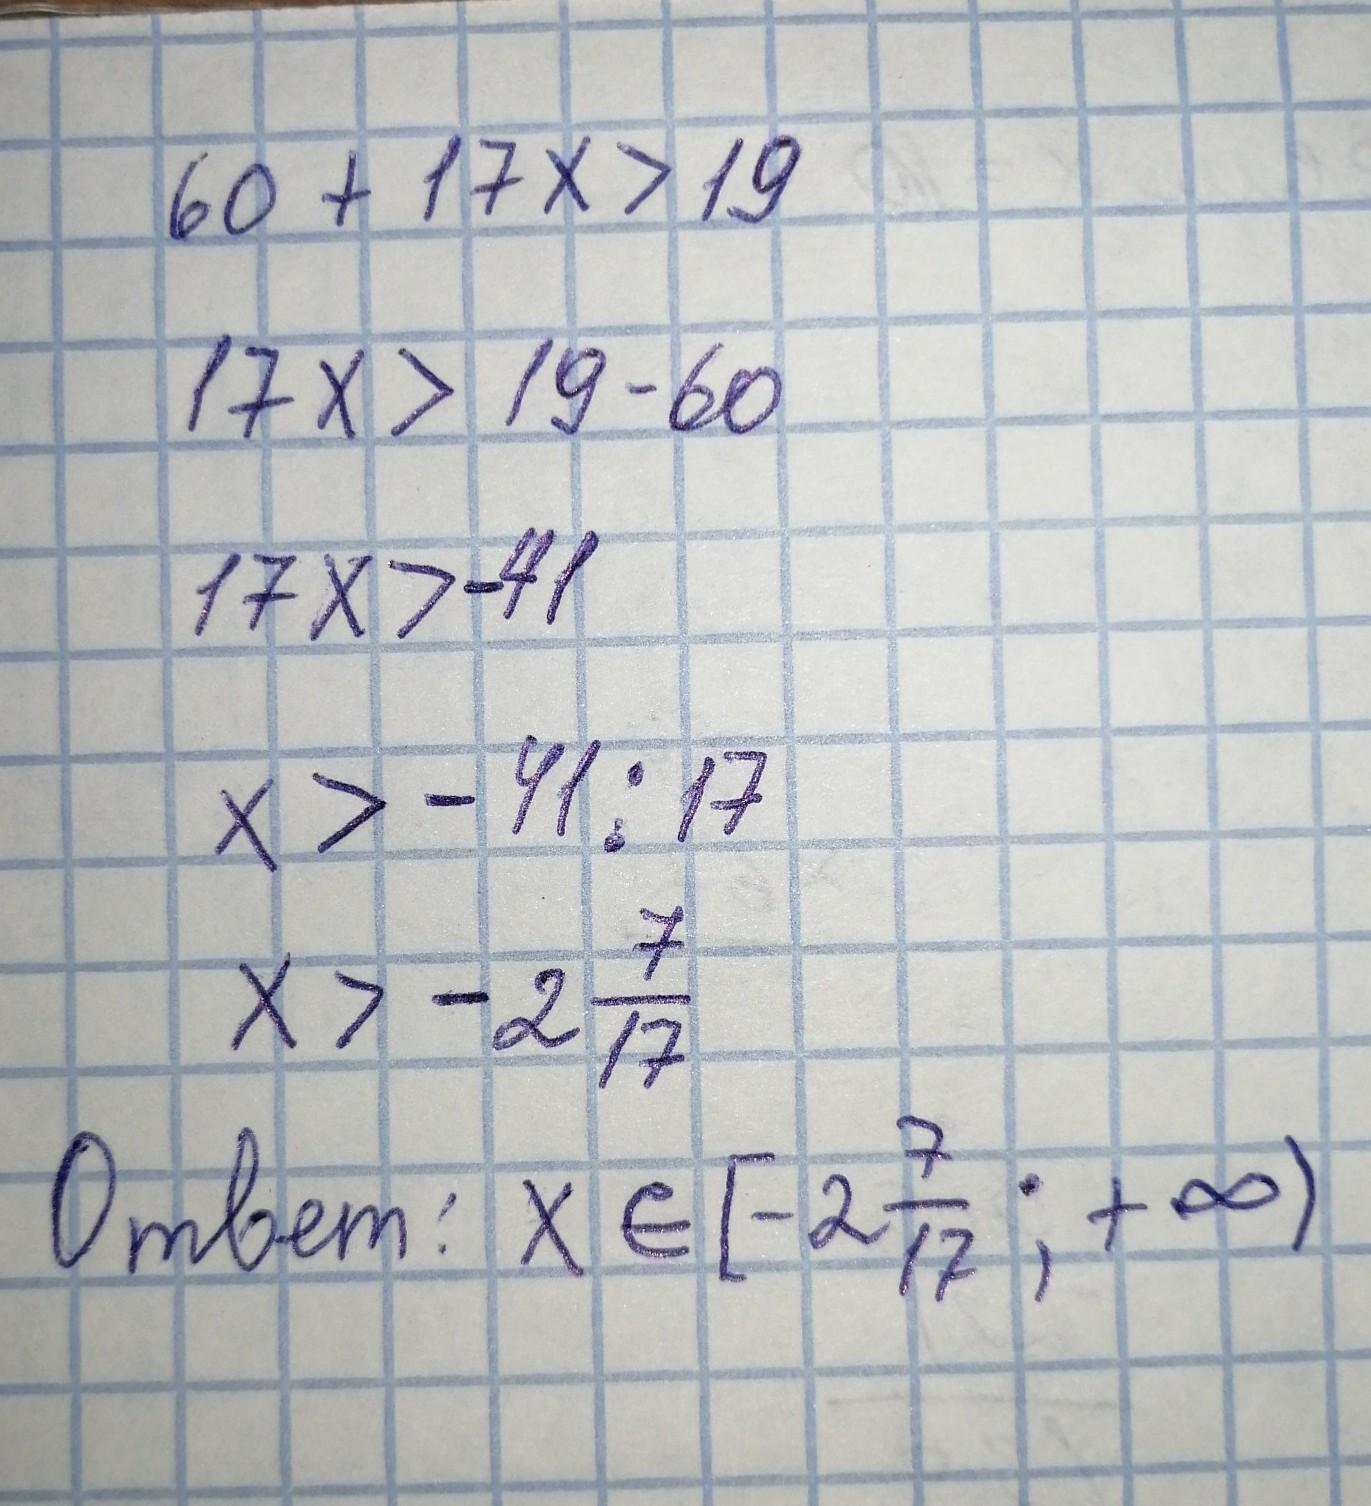 60 + 17x > 19
17x > 19 - 60
17x > -41
x > - 41 : 17
x > - 2 7/17
Ответ: x ∈ [- 2 7/17 ; + ∞)